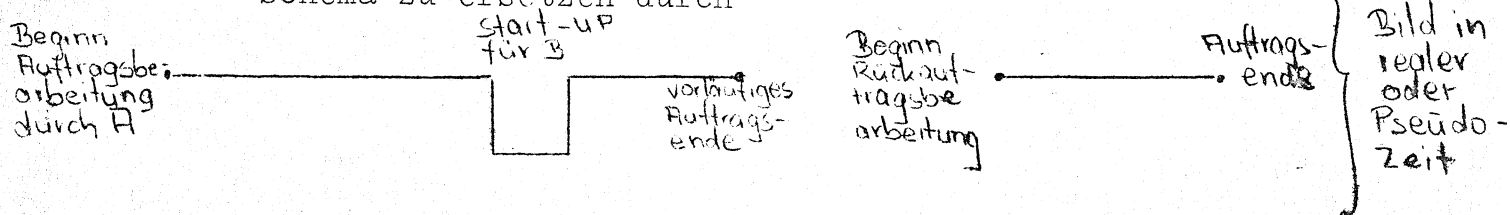 Schema zu ersetzen durch
Beginn
Auftragsbe-
arbeitung
durch A
start-up
für B
vorläufiges
Auftrags-
ende
Beginn
Rückauf-
tragsbe
arbeitung
Auftrags-
ende
Bild in
realer
oder
Pseudo-
Zeit